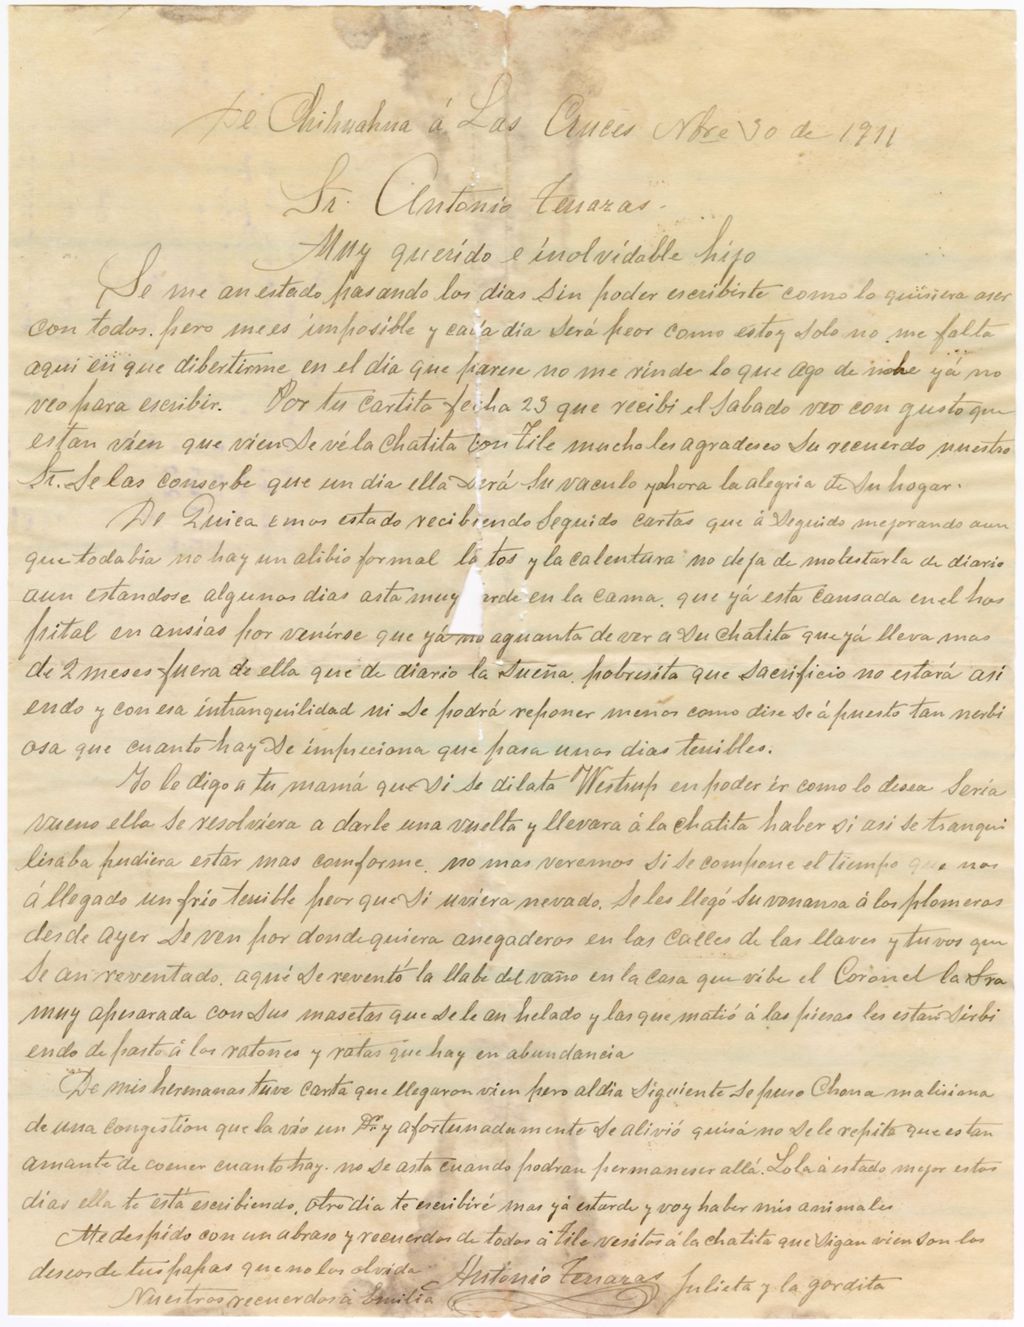 De Chihuahua á Las Cruces Nbre 30 de 1911
Sr. Antonio Terrazas.
Muy querido e inolvidable hijo
Se me an estado pasando los dias sin poder escribirte como lo quisiera aser
con todos. pero me es imposible y cada dia será peor como estoy solo no me falta
aqui en que dibertirme en el día que parese no me rinde lo que ago de nohe yá no
veo para escribir. Por tu cartita fecha 23 que recibi el Sabado veo con gusto que
estan vien que vien se vé la chatita con Tile mucho les agradesco su recuerdo nuestro
Sr. se las conserbe que un dia ella será su vaculo y ahora la alegria de su hogar.
De Quica emos estado recibiendo seguido cartas que á seguido mejorando aun
que todabia no hay un alibio formal la tos y la calentura no deja de molestarla de diario
aun estandose algunos dias asta muy arde en la cama. que yá esta cansada en el hos
pital en ansias por venirse que yá no aguanta de ver a su chatita que yá lleva mas
de 2 meses fuera de ella que de diario la sueña. pobresita que sacrificio no estará asi
endo y con esa intranquilidad ni se podrá reponer menos como dise se á puesto tan nerbi
osa que cuanto hay se impreciona que pasa unos dias terribles.
Yo le digo a tu mamá que si se dilata Westrup en poder ir como lo desea seria
vueno ella se resolviera a darle una vuelta y llevara á la chatita haber si asi se tranqui
lisaba pudiera estar mas comforme. no mas veremos si se compone el tiempo que nos
á llegado un frio terrible peor que si uviera nevado. se les llegó su vonansa á los plomeros
desde ayer se ven por donde quiera anegaderos en las calles de las llaves y tuvos que
se an reventado. aqui se reventó la llabe del vaño en la casa que vibe el Coronel la Sra
muy apurada con sus masetas que se le an helado y las que matió á las piesas les estan sirbi
endo de pasto á los ratones y ratas que hay en abundancia
De mis hermanas tuve carta que llegaron vien pero al dia siguiente se puso Chona malisima
de una congestion que la vio un Dr. y afortunadamente se alivió quisá no se le repita que es tan
amante de comer cuanto hay. no se asta cuando podran permaneser allá. Lola á estado mejor estos
dias ella te está escribiendo, otro dia te escribiré mas yá es tarde y voy haber mis animales
Me despido con un abraso y recuerdos de todos á Tile vesitos á la chatita que sigan vien son los
deseos de tus papas que no los olvida Antonio Terrazas Julieta y la gordita
Nuestros recuerdos á Emilia